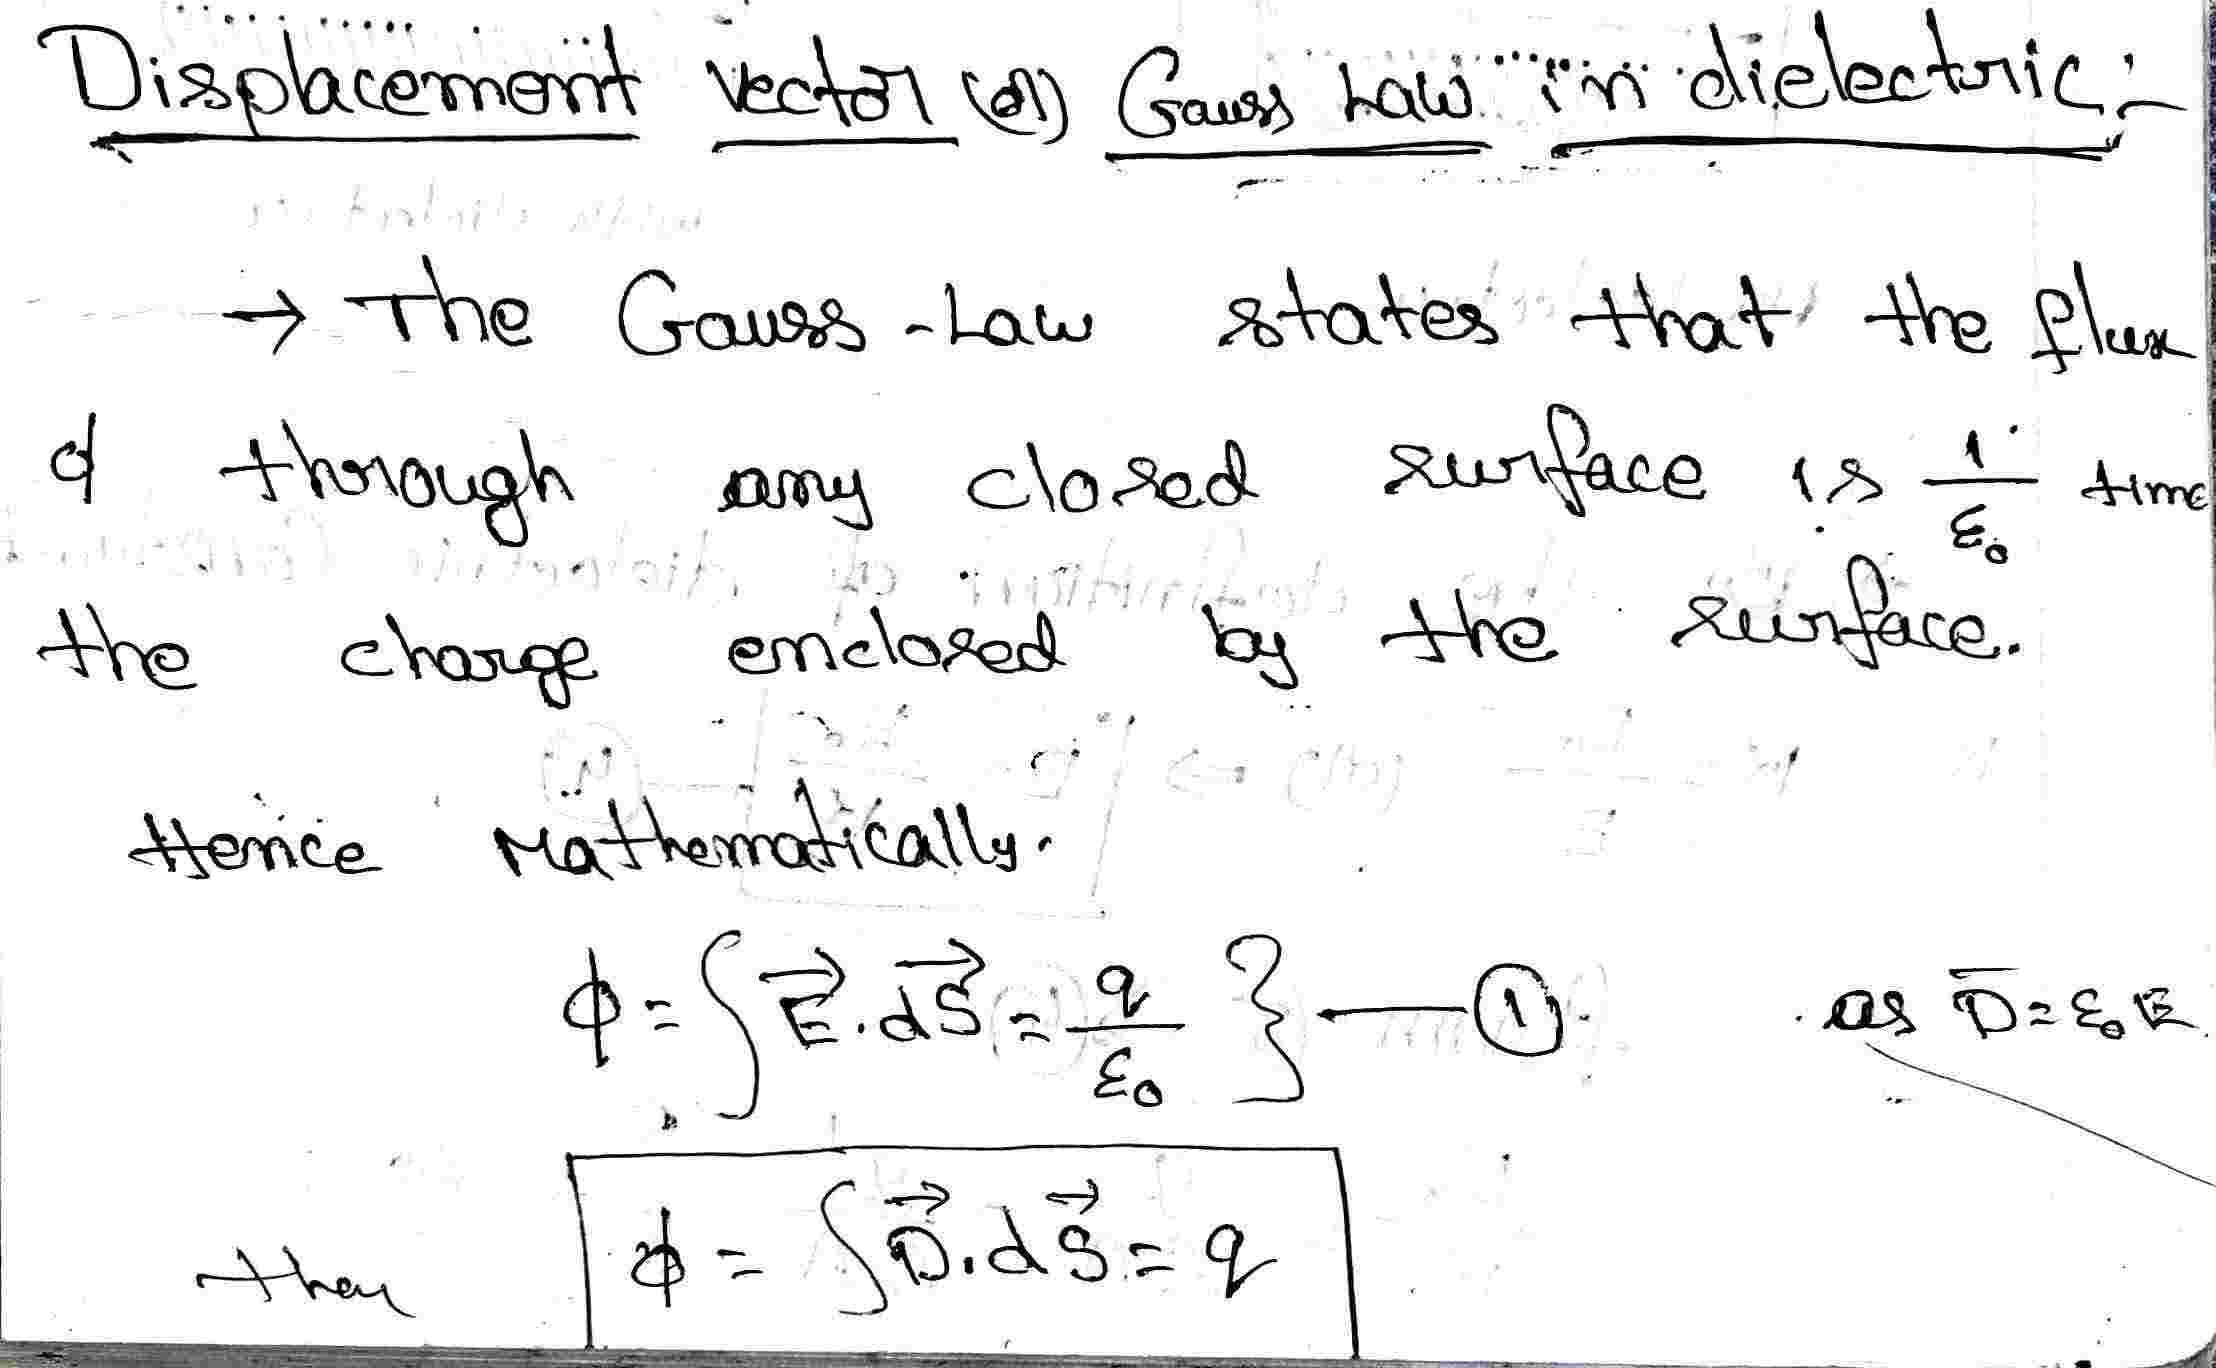 Displacement Vector (or) Gauss Law in dielectric :-
→ The Gauss-Law states that the flux
ϕ through any closed surface is 1/ε₀ time
the charge enclosed by the surface.
Hence Mathematically.
ϕ = ∫ E⃗ . dS⃗ = q/ε₀ } — ① as D̅ = ε₀ E
then ϕ = ∫ D⃗ . dS⃗ = q